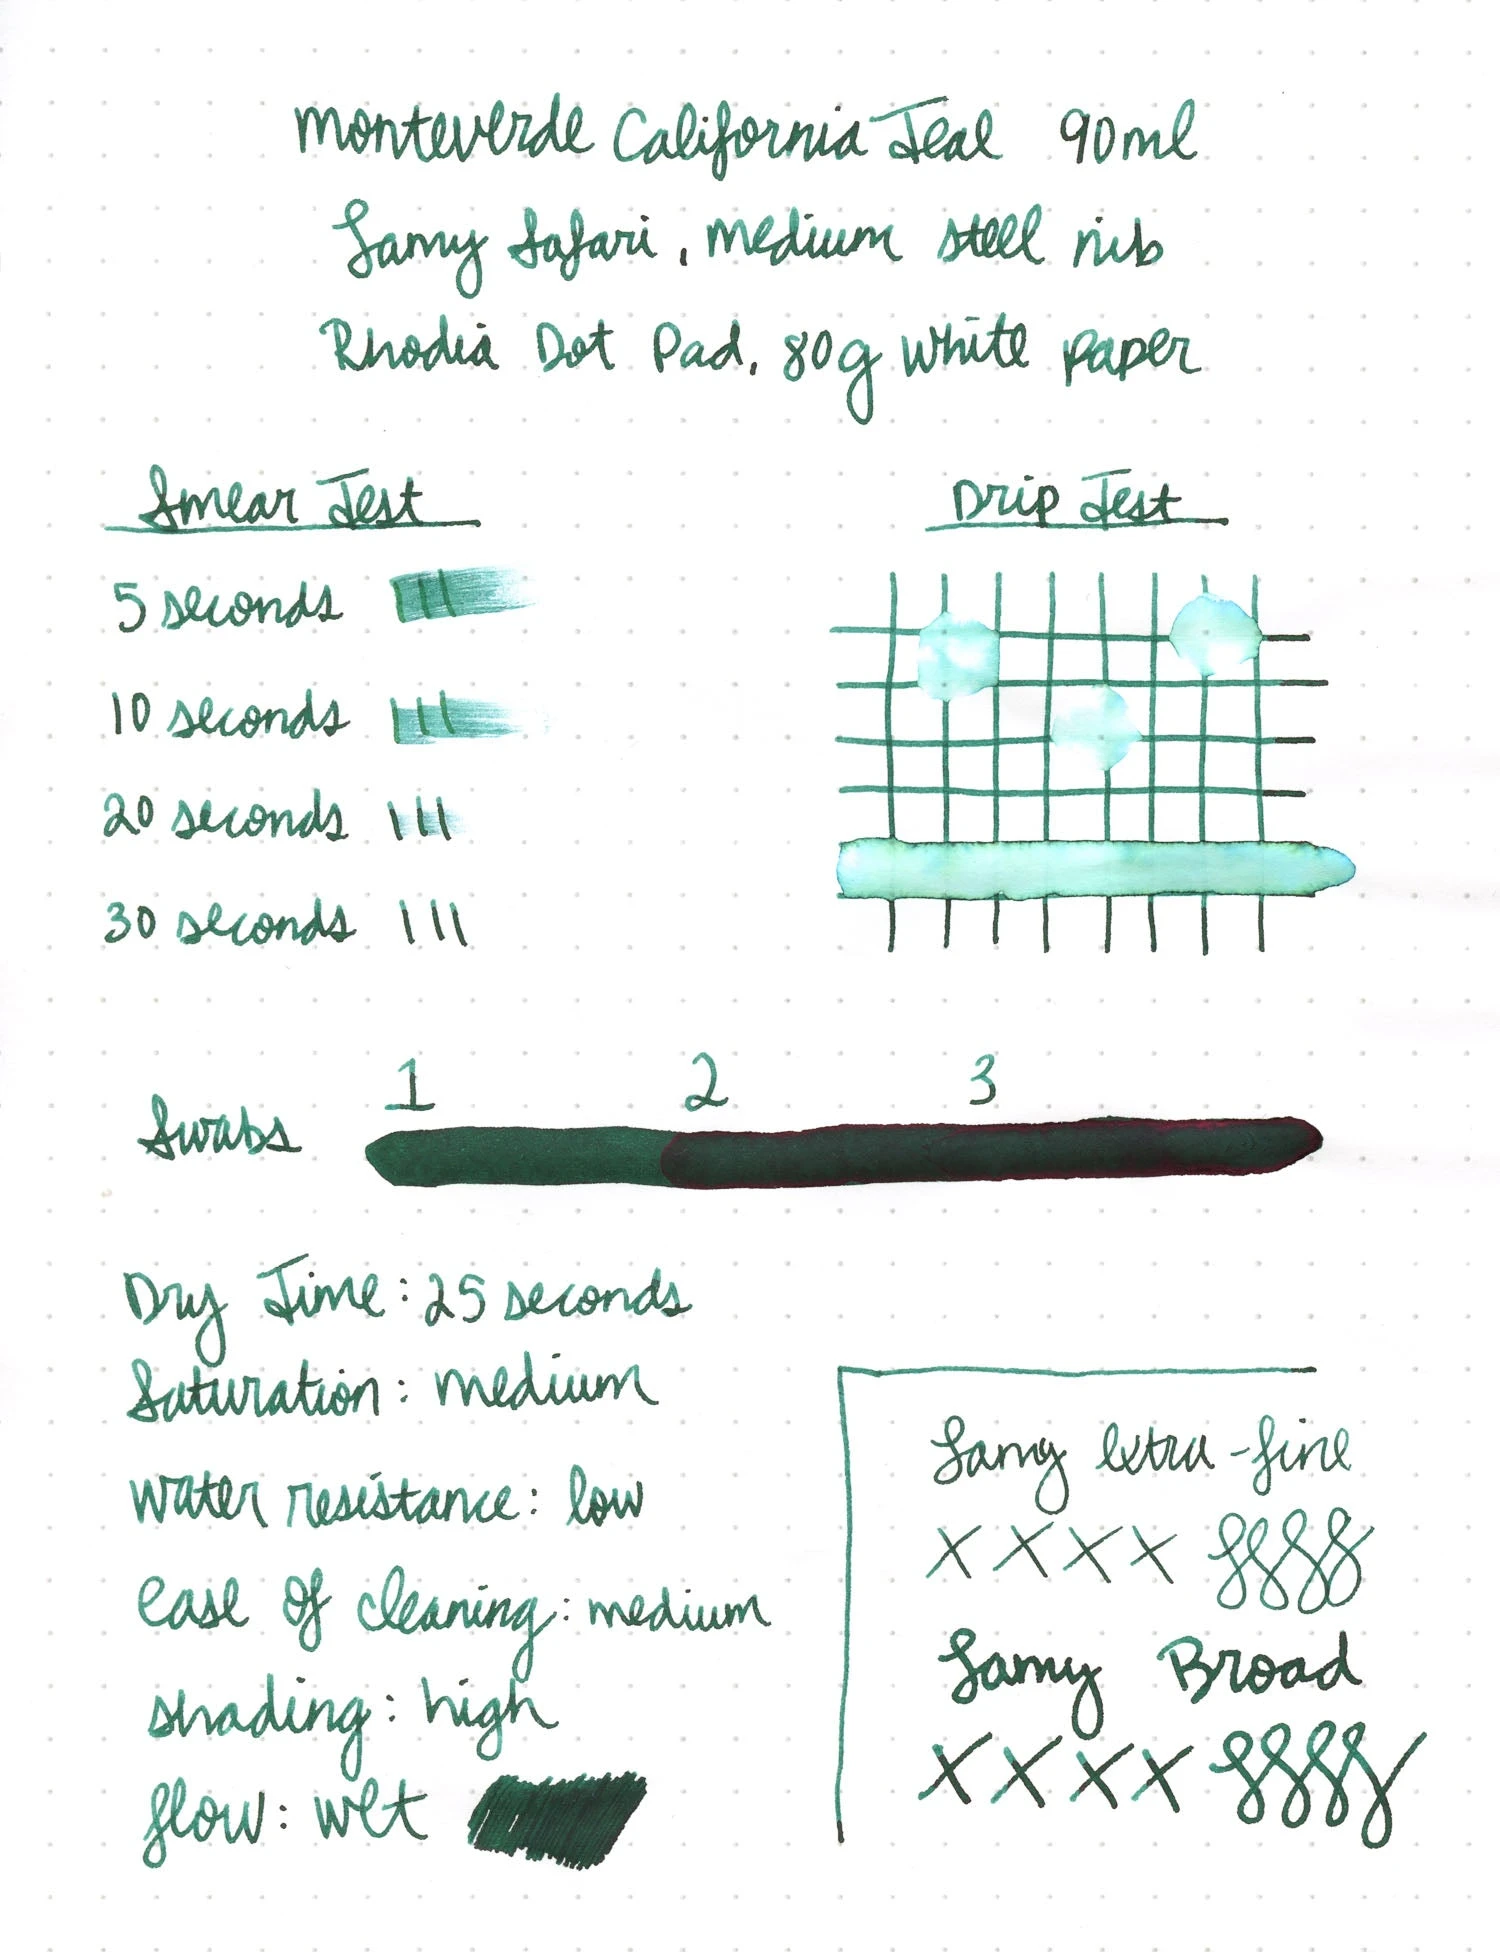 Monteverde California Teal 90ml
Lamy Safari, medium steel nib
Rhodia Dot Pad, 80g white paper
Smear Test
5 seconds
10 seconds
20 seconds
30 seconds
Drip Test
1 2 3
Swabs
Dry Time: 25 seconds
Saturation: medium
Water resistance: low
ease of cleaning: medium
shading: high
flow: wet
Lamy extra-fine
x x x x
Lamy Broad
x x x x